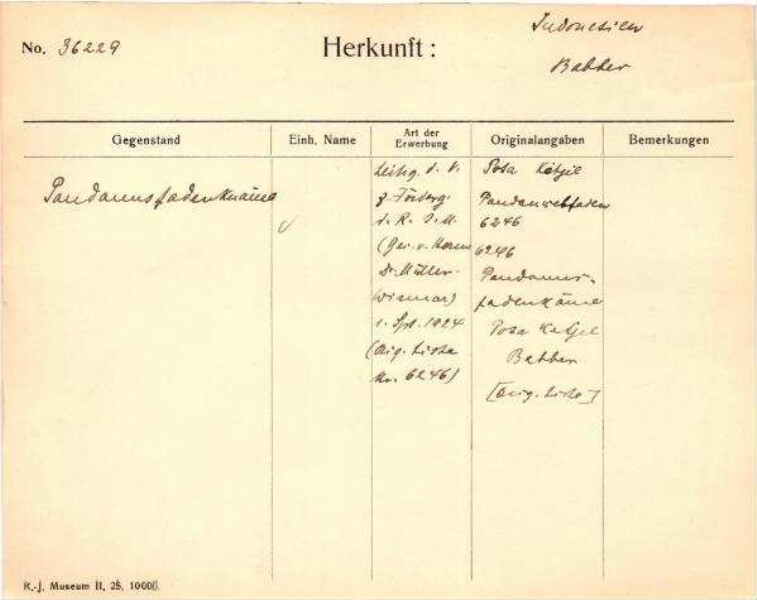 No. 36229
Herkunft:
Indonesien
Babber
Gegenstand
Einh. Name
Art der Erwerbung
Originalangaben
Bemerkungen
Pandanusfadenknäue
Leihg. d. V.
z. Förderg.
d. R. J. M.
(Ges. v. Herrn
Dr. Müller-
Wismar)
1. Spt. 1924
(Orig. Liste
Nr. 6246)
Posa Ketjil
Pandanwebfaden
6246
6246
Pandanus-
fadenkäue
Posa Ketjil
Babber
[Orig. Liste]
R.-J. Museum II, 25, 10000.